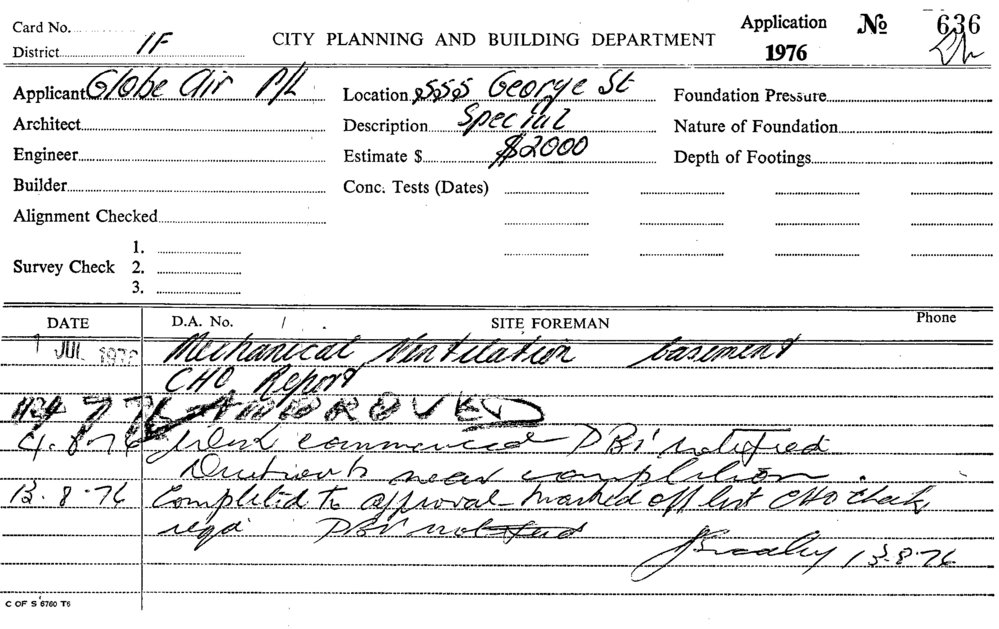 Card No.
District 1F
CITY PLANNING AND BUILDING DEPARTMENT
Application No 636
1976
Applicant Globe Air P/L
Location 555 George St
Foundation Pressure
Architect
Description Special
Nature of Foundation
Engineer
Estimate $ $2000
Depth of Footings
Builder
Conc. Tests (Dates)
Alignment Checked
Survey Check
1.
2.
3.
DATE D.A. No. / . SITE FOREMAN Phone
1 JUL 1976 Mechanical Ventilation basement
CHO Report
7 76 APPROVED
4.8.76 Work commenced DBI notified
near completion.
13.8.76 Completed to approval marked off list CHO check
reqd DBI notified
13-8-76
C OF S 6760 T6